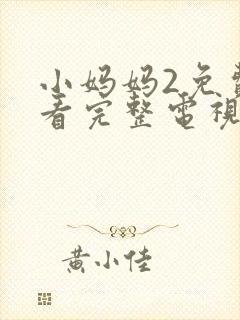 小妈妈2免费
看完整電視
黄小佳